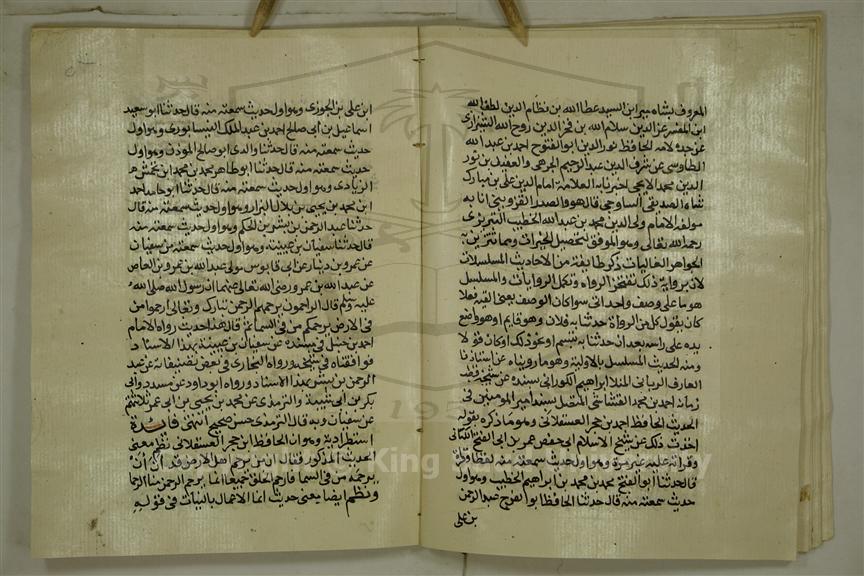 المعروف بشاه مير ابن السيد عطا الله بن نظام الدين لطف الله
ابن المقتر عز الدين سلام الله بن فخر الدين روح الله الشيرازي
عن جده لامه الحافظ نور الدين ابو الفتوح احمد بن عبد الله
الطاوسي عن شرف الدين عبد الرحيم الجرهي والعفيف بن نور
الدين محمد الايجي اخبرنا به العلامة امام الدين علي بن مبارك
شاه الصديقي الساوجي قال هو والصدر القزويني انا به
مولفه الامام ولي الدين محمد بن عبد الله الخطيب التبريزي
رحمه الله تعالى وهو الموفق لتحصيل الخيرات ومما تتزين به
الجواهر الغاليات ذكر طائفة من الاحاديث المسلسلات
لان برواية ذلك تفتخر الرواه وتكمل الروايات والمسلسل
هو ما على وصف واحد اتى سوا كان الوصف يعني القيد فعلا
كان يقول كل من الرواة حدثنا به فلان وهو قايم او هو واضع
يده على راسه بعد ان حدثنا به تبسم او نحو ذلك او كان قولا
ومنه الحديث المسلسل بالاولية وهو ما رويناه عن استاذنا
العارف الرباني المنلا ابراهيم الكوراني بسنده عن شيخه قطب
زمانه احمد بن محمد القشاشي المتصل بسند امير المومنين في
الحديث الحافظ احمد بن حجر العسقلاني وهو ما ذكره بقوله
اخذت ذلك عن شيخ الاسلام ابي حفص عمر بن ابي الفتح الكناني
وقراته عليه غير مرة وهو اول حديث سمعته منه لفظا وقراة
قال حدثنا ابو الفتح محمد بن محمد بن ابراهيم الخطيب وهو اول
حديث سمعته منه قال حدثنا الحافظ ابو الفرج عبد الرحمن
بن علي
ابن علي بن الجوزي وهو اول حديث سمعته منه قال حدثنا ابو سعيد
اسماعيل بن ابي صالح احمد بن عبد الملك النيسابوري وهو اول
حديث سمعته منه قال حدثنا والدي ابو صالح المؤذن وهو اول
حديث سمعته منه قال حدثنا ابو طاهر محمد بن محمد ابن محمش
الزيادي وهو اول حديث سمعته منه قال حدثنا ابو حامد احمد
ابن محمد بن يحيى بن بلال البزار وهو اول حديث سمعته منه قال
حدثنا عبد الرحمن بن بشر بن الحكم وهو اول حديث سمعته منه
قال حدثنا سفيان بن عيينة وهو اول حديث سمعته من سفيان
عن عمرو بن دينار عن ابي قابوس مولى عبد الله بن عمرو بن العاص
عن عبد الله بن عمرو رضي الله تعالى عنهما ان رسول الله صلى الله
عليه وسلم قال الراحمون يرحمهم الرحمن تبارك وتعالى ارحموا من
في الارض يرحمكم من في السماء قال هذا حديث رواه الامام
احمد بن حنبل في مسنده عن سفيان بن عيينة بهذا الاسناد
فوافقناه في شيخه ورواه البخاري في بعض تصنيفاته عن عبد
الرحمن بن بشر بهذا الاسناد ورواه ابو داود عن مسدد وابي
بكر بن ابي شيبة والترمذي عن محمد بن يحيى بن ابي عمر ثلاثتهم
عن سفيان وبه قال الترمذي حسن صحيح انتهى فائدة
استطرادية وهو ان الحافظ ابن حجر العسقلاني نظم معنى
الحديث المذكور فقال ان من يرحم اهل الارض قد آن ان
يرحمه من في السما فارحم الخلق جميعا انما يرحم الرحمن منا الرحما
ونظم ايضا يعني حديث انما الاعمال بالنيات في قوله